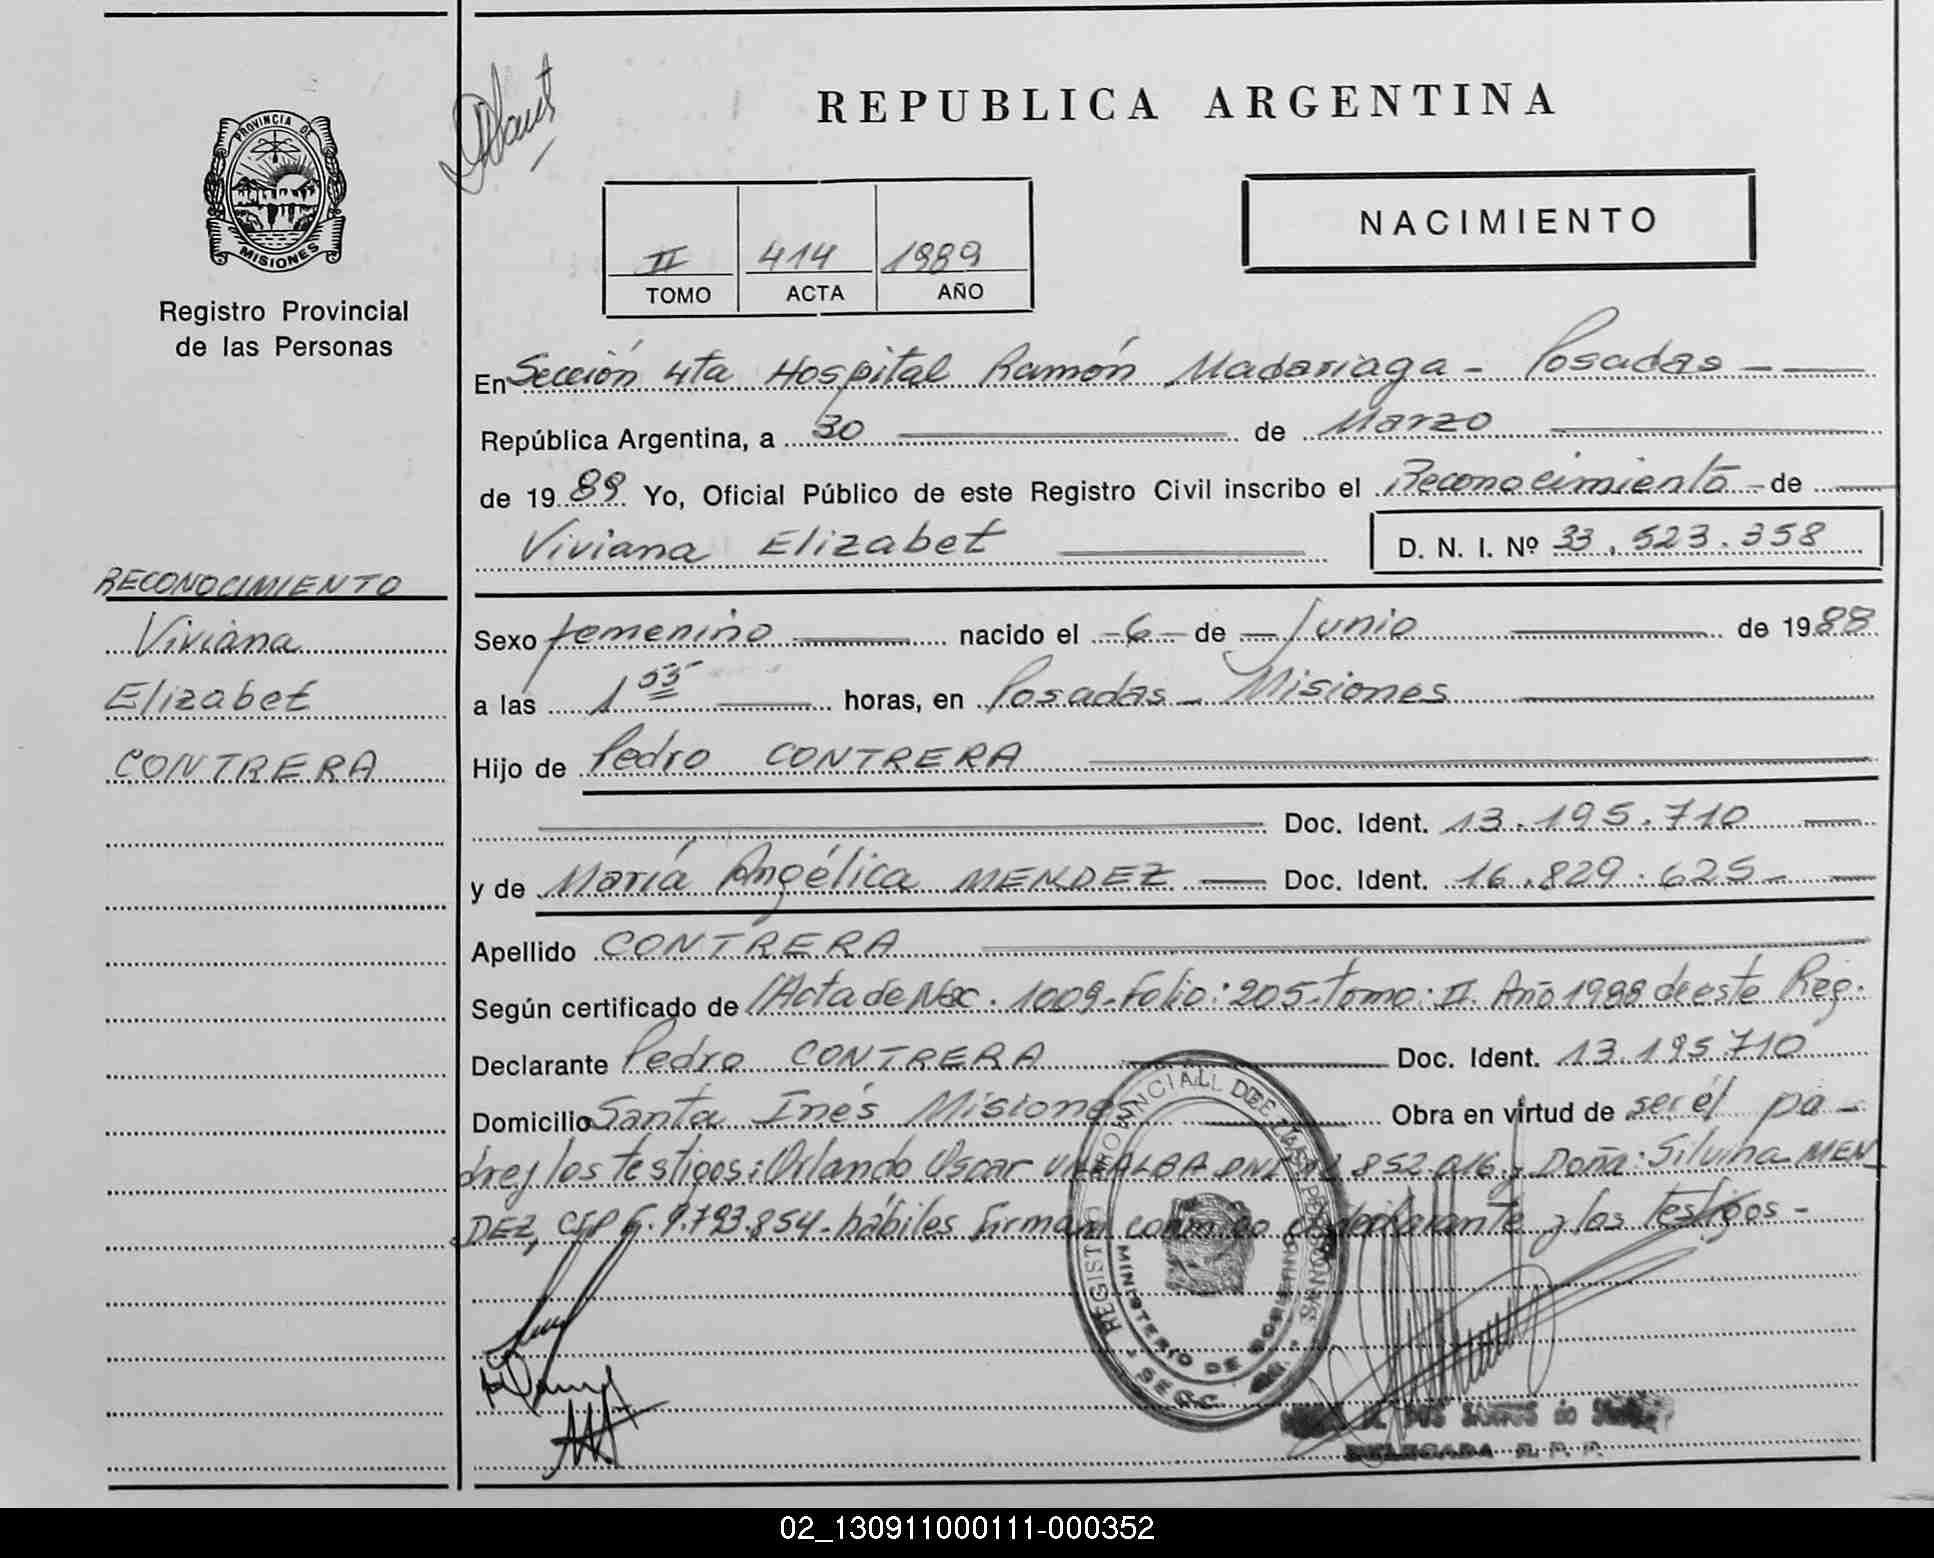 REPUBLICA ARGENTINA
PROVINCIA DE
MISIONES
Registro Provincial
de las Personas
II 414 1989
TOMO ACTA AÑO
NACIMIENTO
En Sección 4ta Hospital Ramón Madariaga - Posadas -
República Argentina, a 30 de Marzo
de 1989 Yo, Oficial Público de este Registro Civil inscribo el Reconocimiento - de
Viviana Elizabet D. N. I. Nº 33.523.358
RECONOCIMIENTO
Viviana
Elizabet
CONTRERA
Sexo femenino nacido el -6- de - Junio de 1988
a las 1 55 horas, en Posadas - Misiones
Hijo de Pedro CONTRERA
Doc. Ident. 13.195.710
y de María Angélica MENDEZ Doc. Ident. 16.829.625-
Apellido CONTRERA
Según certificado de Acta de Nac. 1009-Folio: 205-tomo: II. Año 1988 de este Reg.
Declarante Pedro CONTRERA Doc. Ident. 13.195.710
Domicilio Santa Inés Misiones Obra en virtud de ser él pa-
dre y los testigos: Orlando Oscar VILLALBA DNI 852.016 y Doña: Silvina MEN
DEZ, CIP 9.793.854-hábiles firman conmigo el declarante y los testigos-
REGISTRO PROVINCIAL DE LAS PERSONAS
MINISTERIO DE GOBIERNO
SECC.
DOS SANTOS
DELEGADA R. P. P.
02_130911000111-000352